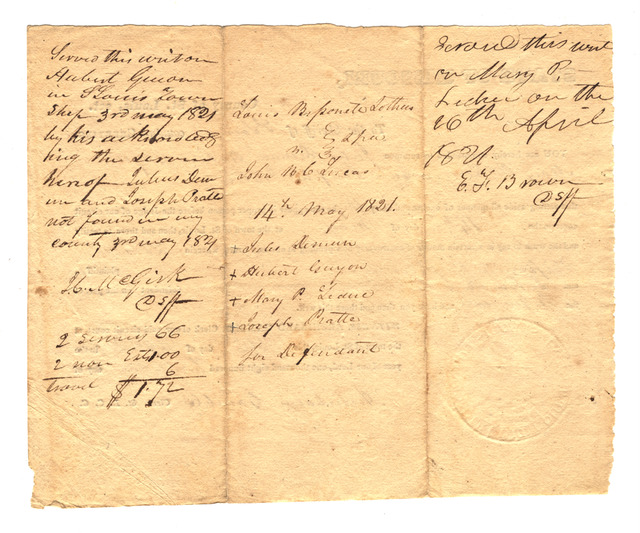 Served this writ on
Hubert Guion
in St Louis Town
Ship 3rd may 1821
by his acknowledg
ing the servis
hereof Julius Dem
un and Joseph Pratte
not found in my
county 3rd may 1821
McGirk
DSff
2 services 66
2 non Ests 1.00
6
travel $1.72
Louis Bissonet &
vs.
John B C Lucas
14th May 1821.
+ Jules Demun
+ Hubert Guyon
+ Mary P. Leduc
+ Joseph Pratte
for Defendant
Served this writ
on Mary P.
Leduc on the
26th April
1821.
E. T. Brown
DSff